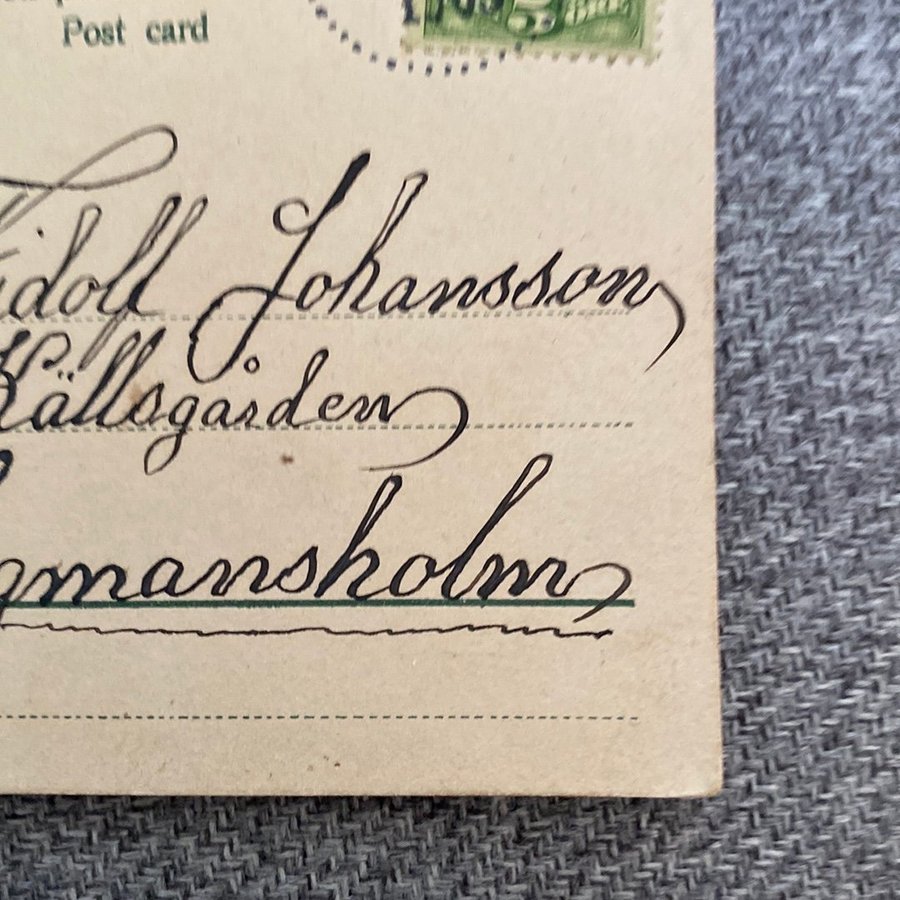 Post card
Fridolf Johansson
Källsgården
gmansholm